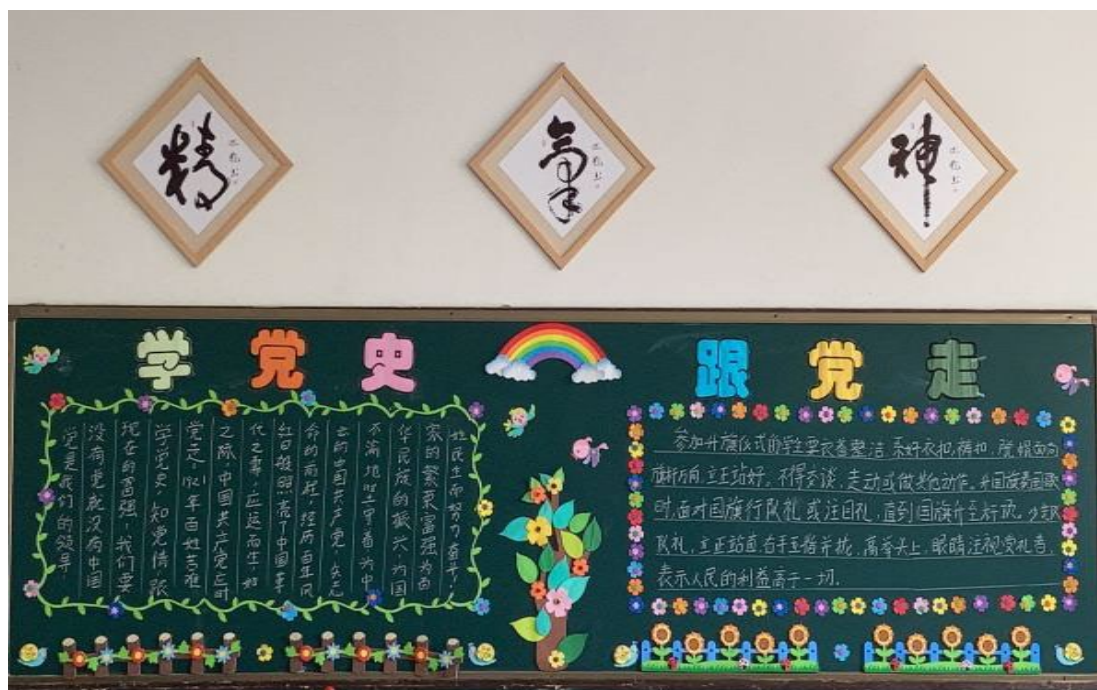 精
气
神
学党史
跟党走
党是我们的领导
没有党就没有中国
现在的富强,我们要
学党史,知党情,跟
党走,1921年百姓苦难
之际,中国共产党应时
代之幸,应运而生,如
红日般照亮了中国革
命的前程,经历百年风
云的中国共产党,矢志
不渝地坚守着为中
华民族的振兴,为国
家的繁荣富强,为百
姓民生而努力奋斗!
参加升旗仪式的学生要衣着整洁,系好衣扣,裤扣,脱帽面向
旗杆方向,立正站好,不得交谈、走动或做其他动作。升国旗奏国歌
时,面对国旗行队礼或注目礼,直到国旗升至杆顶。少先
队礼,立正站直右手五指并拢,高举头上,眼睛注视受礼者,
表示人民的利益高于一切.